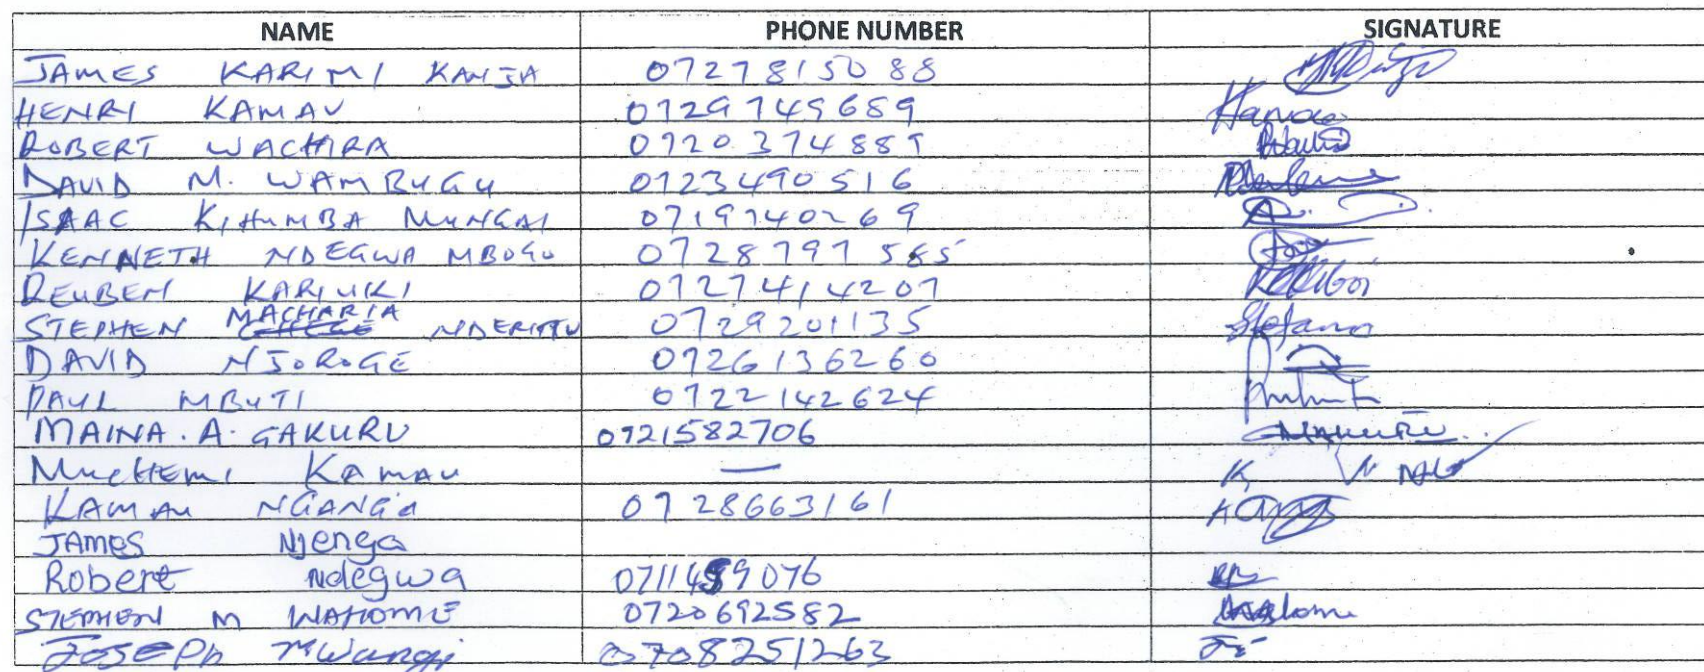 NAME PHONE NUMBER SIGNATURE
JAMES KARIMI KANJA 0727815088
HENRI KAMAU 0729749689
ROBERT WACHIRA 0720374889
DAVID M. WAMBUGU 0723490516
ISAAC KIHUMBA MUNGAI 0719740269
KENNETH NDEGWA MBOGO 0728797565
REUBEN KARIUKI 0727414207
STEPHEN MACHARIA NDERITU 0729201135 Stefano
DAVID NJOROGE 0726136260
PAUL MBUTI 0722142624
MAINA. A. GAKURU 0721582706
MUCHEMI KAMAU —
KAMAU NGANGA 0728663161
JAMES Njenga
Robert Ndegwa 0711459076
STEPHEN M WAHOME 0720692582
JOSEPh MWangi 0708251263